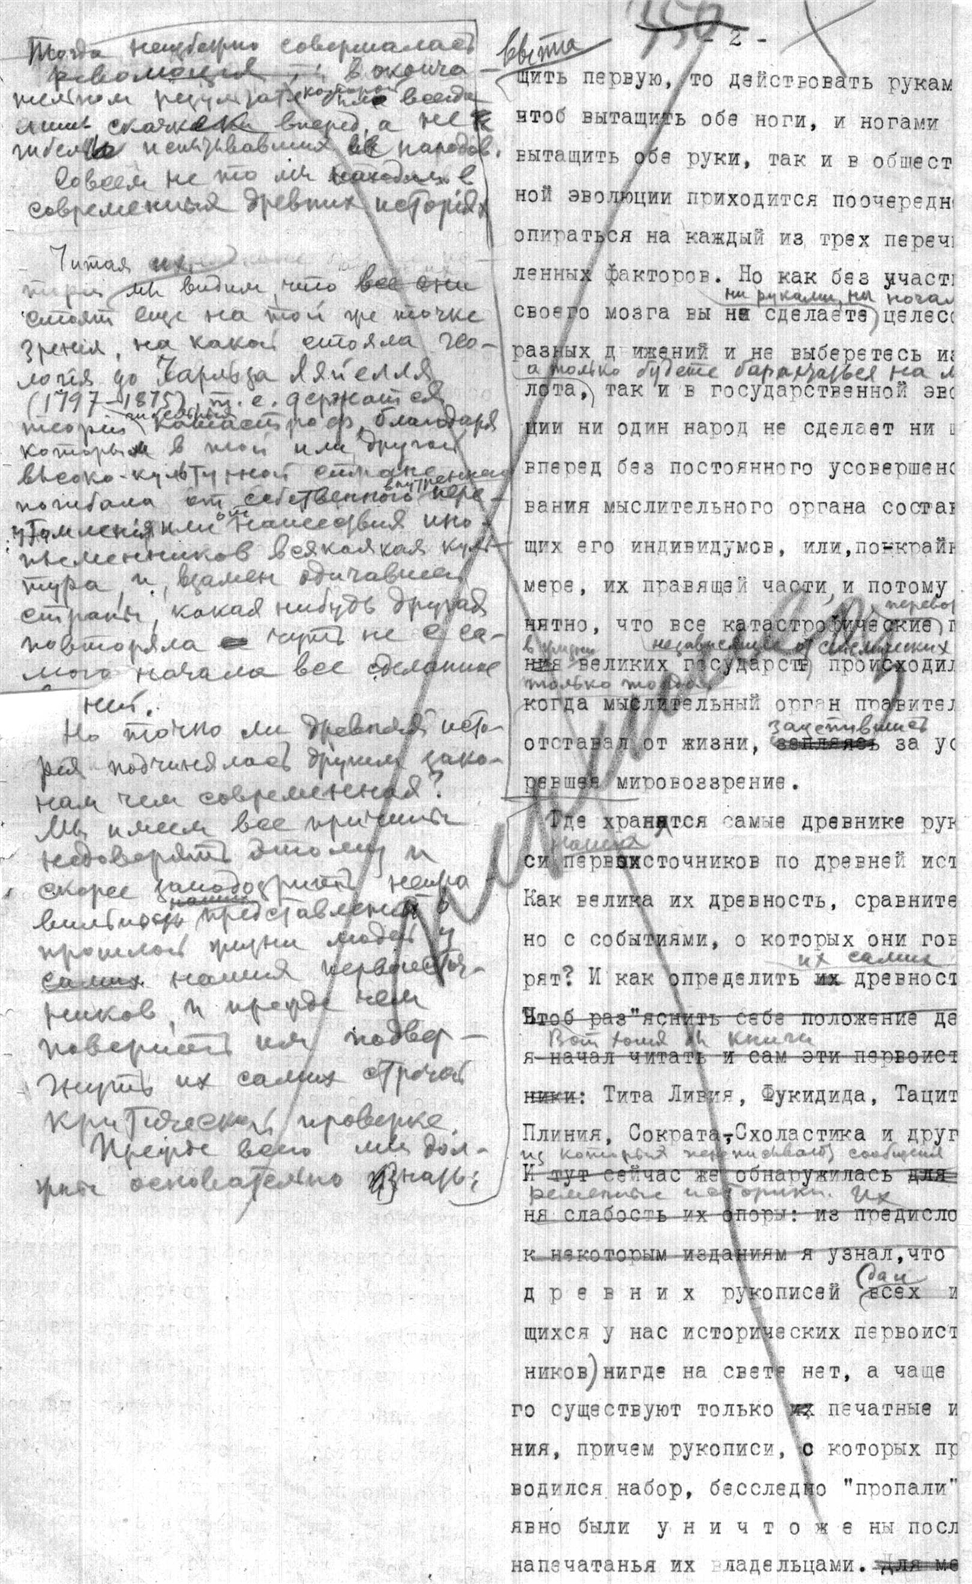 Тогда неизбежно совершалась
революция, и в оконча
тельном результате которой было всегда
лишь скачком вперед, а не
гибелью испытывавших их народов.
Совсем не то мы находим в
современных древних историях
Читая их,
мы видим, что все они
стоят еще на той же точке
зрения, на какой стояла гео-
логия до Чарльза Ляйелля
(1797-1875), т.е. держатся
теории катастроф, благодаря
которым в той или другой
высоко-культурной стране
погибала от собственного внутреннего пере-
утомления или от нашествия ино-
племенников всякая куль-
тура, и, взамен одичавшей
страны, какая нибудь другая
повторяла чуть не с са-
мого начала все сделанное
ней.
Но точно ли древняя исто-
рия подчинялась другим зако-
нам чем современная?
Мы имеем все причины
недоверять этому и
скорее заподозрить непра
вильность наших представлений о
прошлой жизни людей у
самих наших первоисточ-
ников, и прежде чем
поверить им подвер-
гнуть их самих строгой
критической проверке.
Прежде всего мы дол-
жны основательно узнать:
- 2 -
щить первую, то действовать рукам
чтоб вытащить обе ноги, и ногами
вытащить обе руки, так и в общест
ной эволюции приходится поочередн
опираться на каждый из трех переч
ленных факторов. Но как без участ
ни руками, ни ногам
своего мозга вы не сделаете целесо
разных д ижений и не выберетесь из
а только будете барахтаться на
лота, так и в государственной эво
ции ни один народ не сделает ни
вперед без постоянного усовершенс
вания мыслительного органа состав
щих его индивидумов, или,по-крайн
мере, их правящей части, и потому
перевор
нятно, что все катастрофические
в жизни независящие от стихических
ния великих государств происходил
только тогда,
когда мыслительный орган правител
застывшись
отставал от жизни, цепляясь за ус
ревшее мировоззрение.
Где хранятся самые древние рук
наших
си первоисточников по древней ист
Как велика их древность, сравните
но с событиями, о которых они гов
их самих
рят? И как определить их древност
Чтоб раз"яснить себе положение де
Вот хотя бы книги
я начал читать и сам эти первоист
ники: Тита Ливия, Фукидида, Тацит
Плиния, Сократа,-Схоластика и друг
из которых переписывают сообщения
И тут сейчас же обнаружилась для
ременные историки. Их
ня слабость их опоры: из предисло
к некоторым изданиям я узнал,что
д р е в н и х рукописей всех и
щихся у нас исторических первоист
ников) нигде на свете нет, а чаще
го существуют только их печатные и
ния, причем рукописи, с которых пр
водился набор, бесследно "пропали"
явно были у н и ч т о ж е ны посл
напечатанья их владельцами. Для ме